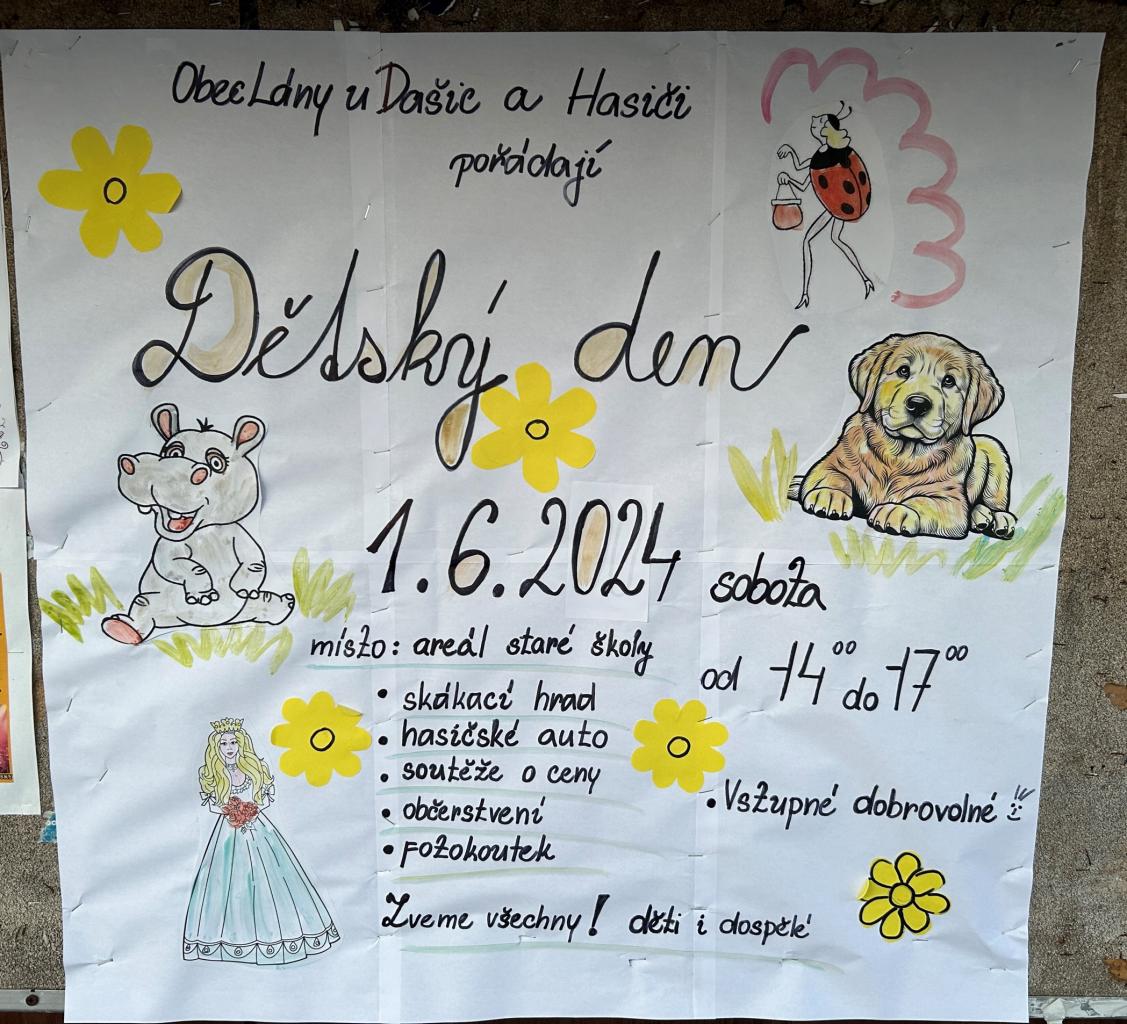 Obec Lány u Dašic a Hasiči
pořádají
Dětský den
1.6.2024 sobota
místo: areál staré školy
od 14⁰⁰ do 17⁰⁰
• skákací hrad
• hasičské auto
• soutěže o ceny
• občerstvení
• fotokoutek
• Vstupné dobrovolné
Zveme všechny! děti i dospělé